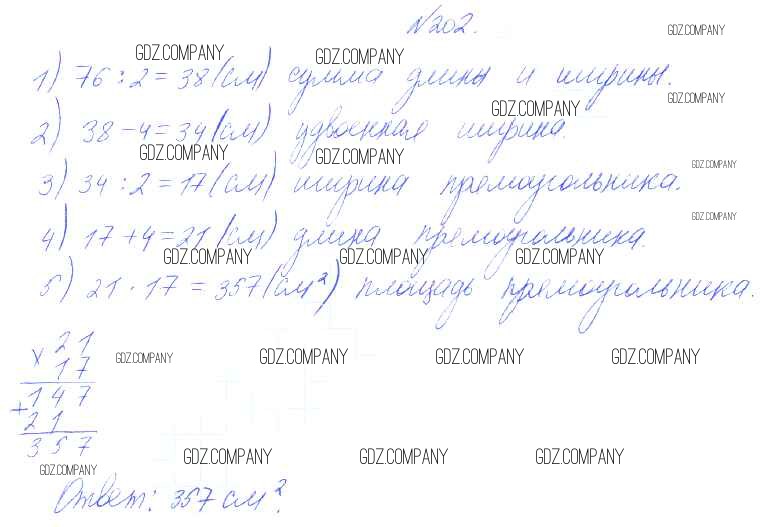 №202.
GDZ.COMPANY
GDZ.COMPANY GDZ.COMPANY
1) 76 : 2 = 38 (см) сумма длины и ширины.
GDZ.COMPANY
GDZ.COMPANY
2) 38 - 4 = 34 (см) удвоенная ширина.
GDZ.COMPANY GDZ.COMPANY
GDZ.COMPANY
3) 34 : 2 = 17 (см) ширина прямоугольника.
GDZ.COMPANY
4) 17 + 4 = 21 (см) длина прямоугольника.
GDZ.COMPANY GDZ.COMPANY GDZ.COMPANY
5) 21 · 17 = 357 (см²) площадь прямоугольника.
× 21
17
GDZ.COMPANY GDZ.COMPANY GDZ.COMPANY GDZ.COMPANY
147
+ 21
357
GDZ.COMPANY GDZ.COMPANY GDZ.COMPANY
GDZ.COMPANY
Ответ: 357 см².